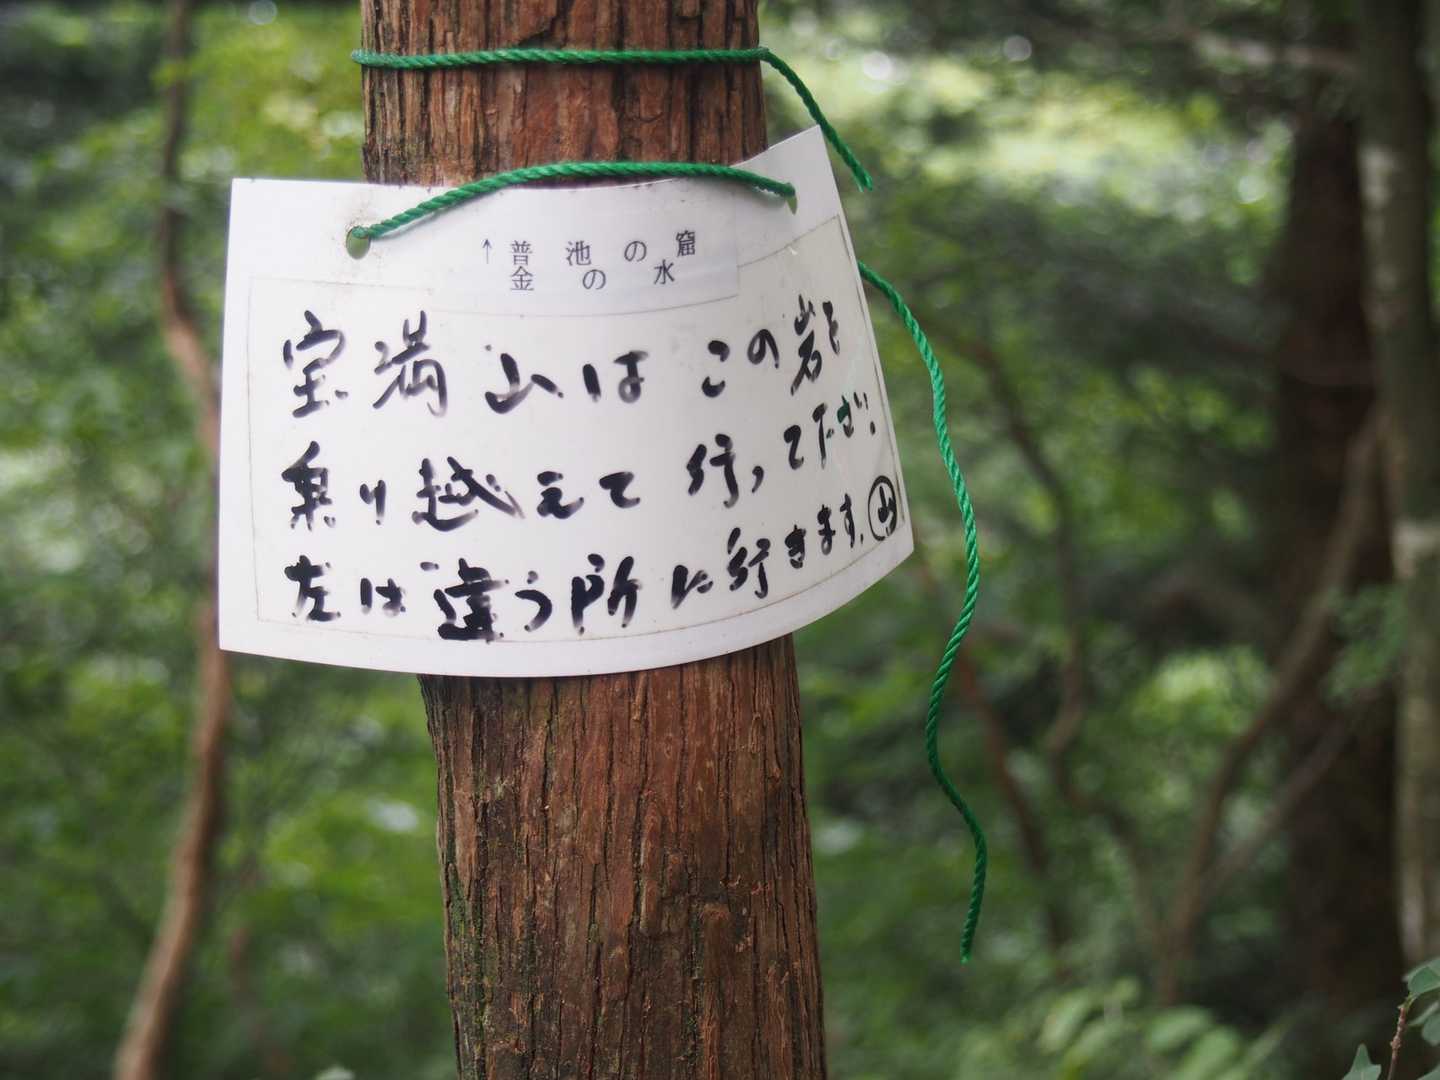 ↑普池の窟
金の水
宝満山はこの岩を
乗り越えて行って下さい。
左は違う所に行きます。山